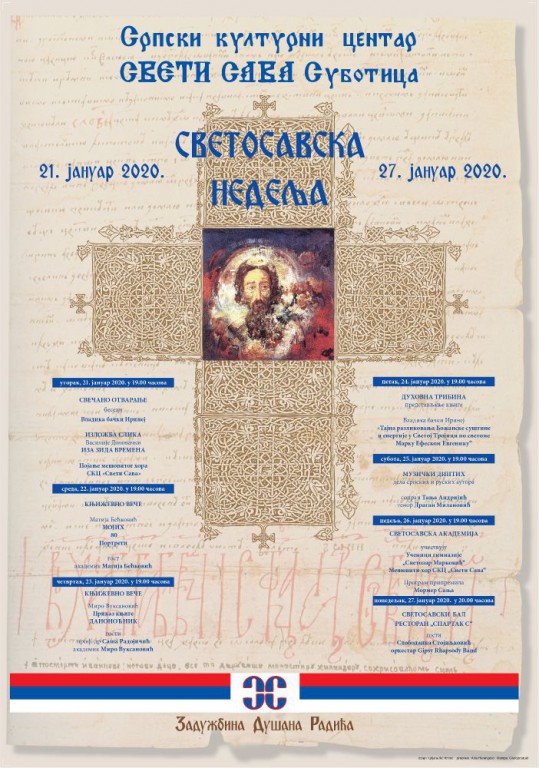 Српски културни центар
СВЕТИ САВА Суботица
СВЕТОСАВСКА
НЕДЕЉА
21. јануар 2020.
27. јануар 2020.
уторак, 21. јануар 2020. у 19.00 часова
СВЕЧАНО ОТВАРАЊЕ
беседи
Владика бачки Иринеј
ИЗЛОЖБА СЛИКА
ИЗА ЗИДА ВРЕМЕНА
Појање мешовитог хора
СКЦ «Свети Сава»
среда, 22. јануар 2020. у 19.00 часова
КЊИЖЕВНО ВЕЧЕ
Матија Бећковић
МОЈИХ
80
Портрети
гост
академик Матија Бећковић
четвртак, 23. јануар 2020. у 19.00 часова
КЊИЖЕВНО ВЕЧЕ
Миро Вуксановић
Приказ књиге
ДАНОНОЋНИК
гости
проф. др Сава Радоњић
академик Миро Вуксановић
петак, 24. јануар 2020. у 19.00 часова
ДУХОВНА ТРИБИНА
представљање књиге
Владика бачки Иринеј
«Тајна разликовања Божанске суштине
и енергије у Светој Тројици по светоме
Марку Ефеском Евгенику"
субота, 25. јануар 2020. у 19.00 часова
МУЗИЧКИ ДИПТИХ
дела српских и руских аутора
сопран Тања Андријић
тенор Драган Милановић
недеља, 26. јануар 2020. у 19.00 часова
СВЕТОСАВСКА АКАДЕМИЈА
учествују
Ученици гимназије
„Светозар Марковић"
Мешовити хор СКЦ „Свети Сава"
Програм припремила
понедељак, 27. јануар 2020. у 20.00 часова
СВЕТОСАВСКИ БАЛ
РЕСТОРАН „СПАРТАК С"
гости
оркестар Gipsy Rhapsody Band
Задужбина Душана Радића